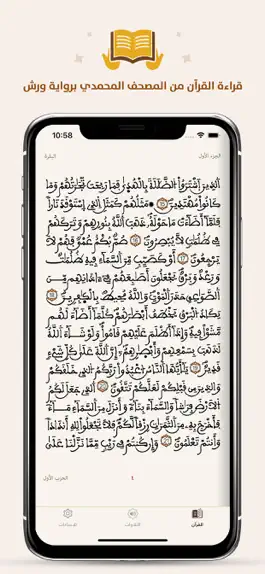 قراءة القرآن من المصحف المحمدي برواية ورش
10:58
البقرة
الجزء الأول
الذين اشتروا الضلالة بالهدى فما ربحت تجارتهم وما
كانوا مهتدين مثلهم كمثل الذي استوقد نارا
فلما أضاءت ما حوله ذهب الله بنورهم وتركهم
في ظلمات لا يبصرون صم بكم عمي فهم لا
يرجعون أو كصيب من السماء فيه ظلمات
ورعد وبرق يجعلون أصابعهم في ءاذانهم من
الصواعق حذر الموت والله محيط بالكافرين
يكاد البرق يخطف أبصارهم كلما أضاء لهم
مشوا فيه وإذا أظلم عليهم قاموا ولو شاء الله
لذهب بسمعهم وأبصارهم إن الله على كل شيء
قدير يأيها الناس اعبدوا ربكم الذي خلقكم
والذين من قبلكم لعلكم تتقون الذي جعل لكم
الأرض فراشا والسماء بناء وأنزل من السماء ماء
فأخرج به من الثمرات رزقا لكم فلا تجعلوا لله أندادا
وأنتم تعلمون وإن كنتم في ريب مما نزلنا على
الحزب الأول
٤
القرآن
التلاوات
الإعدادات